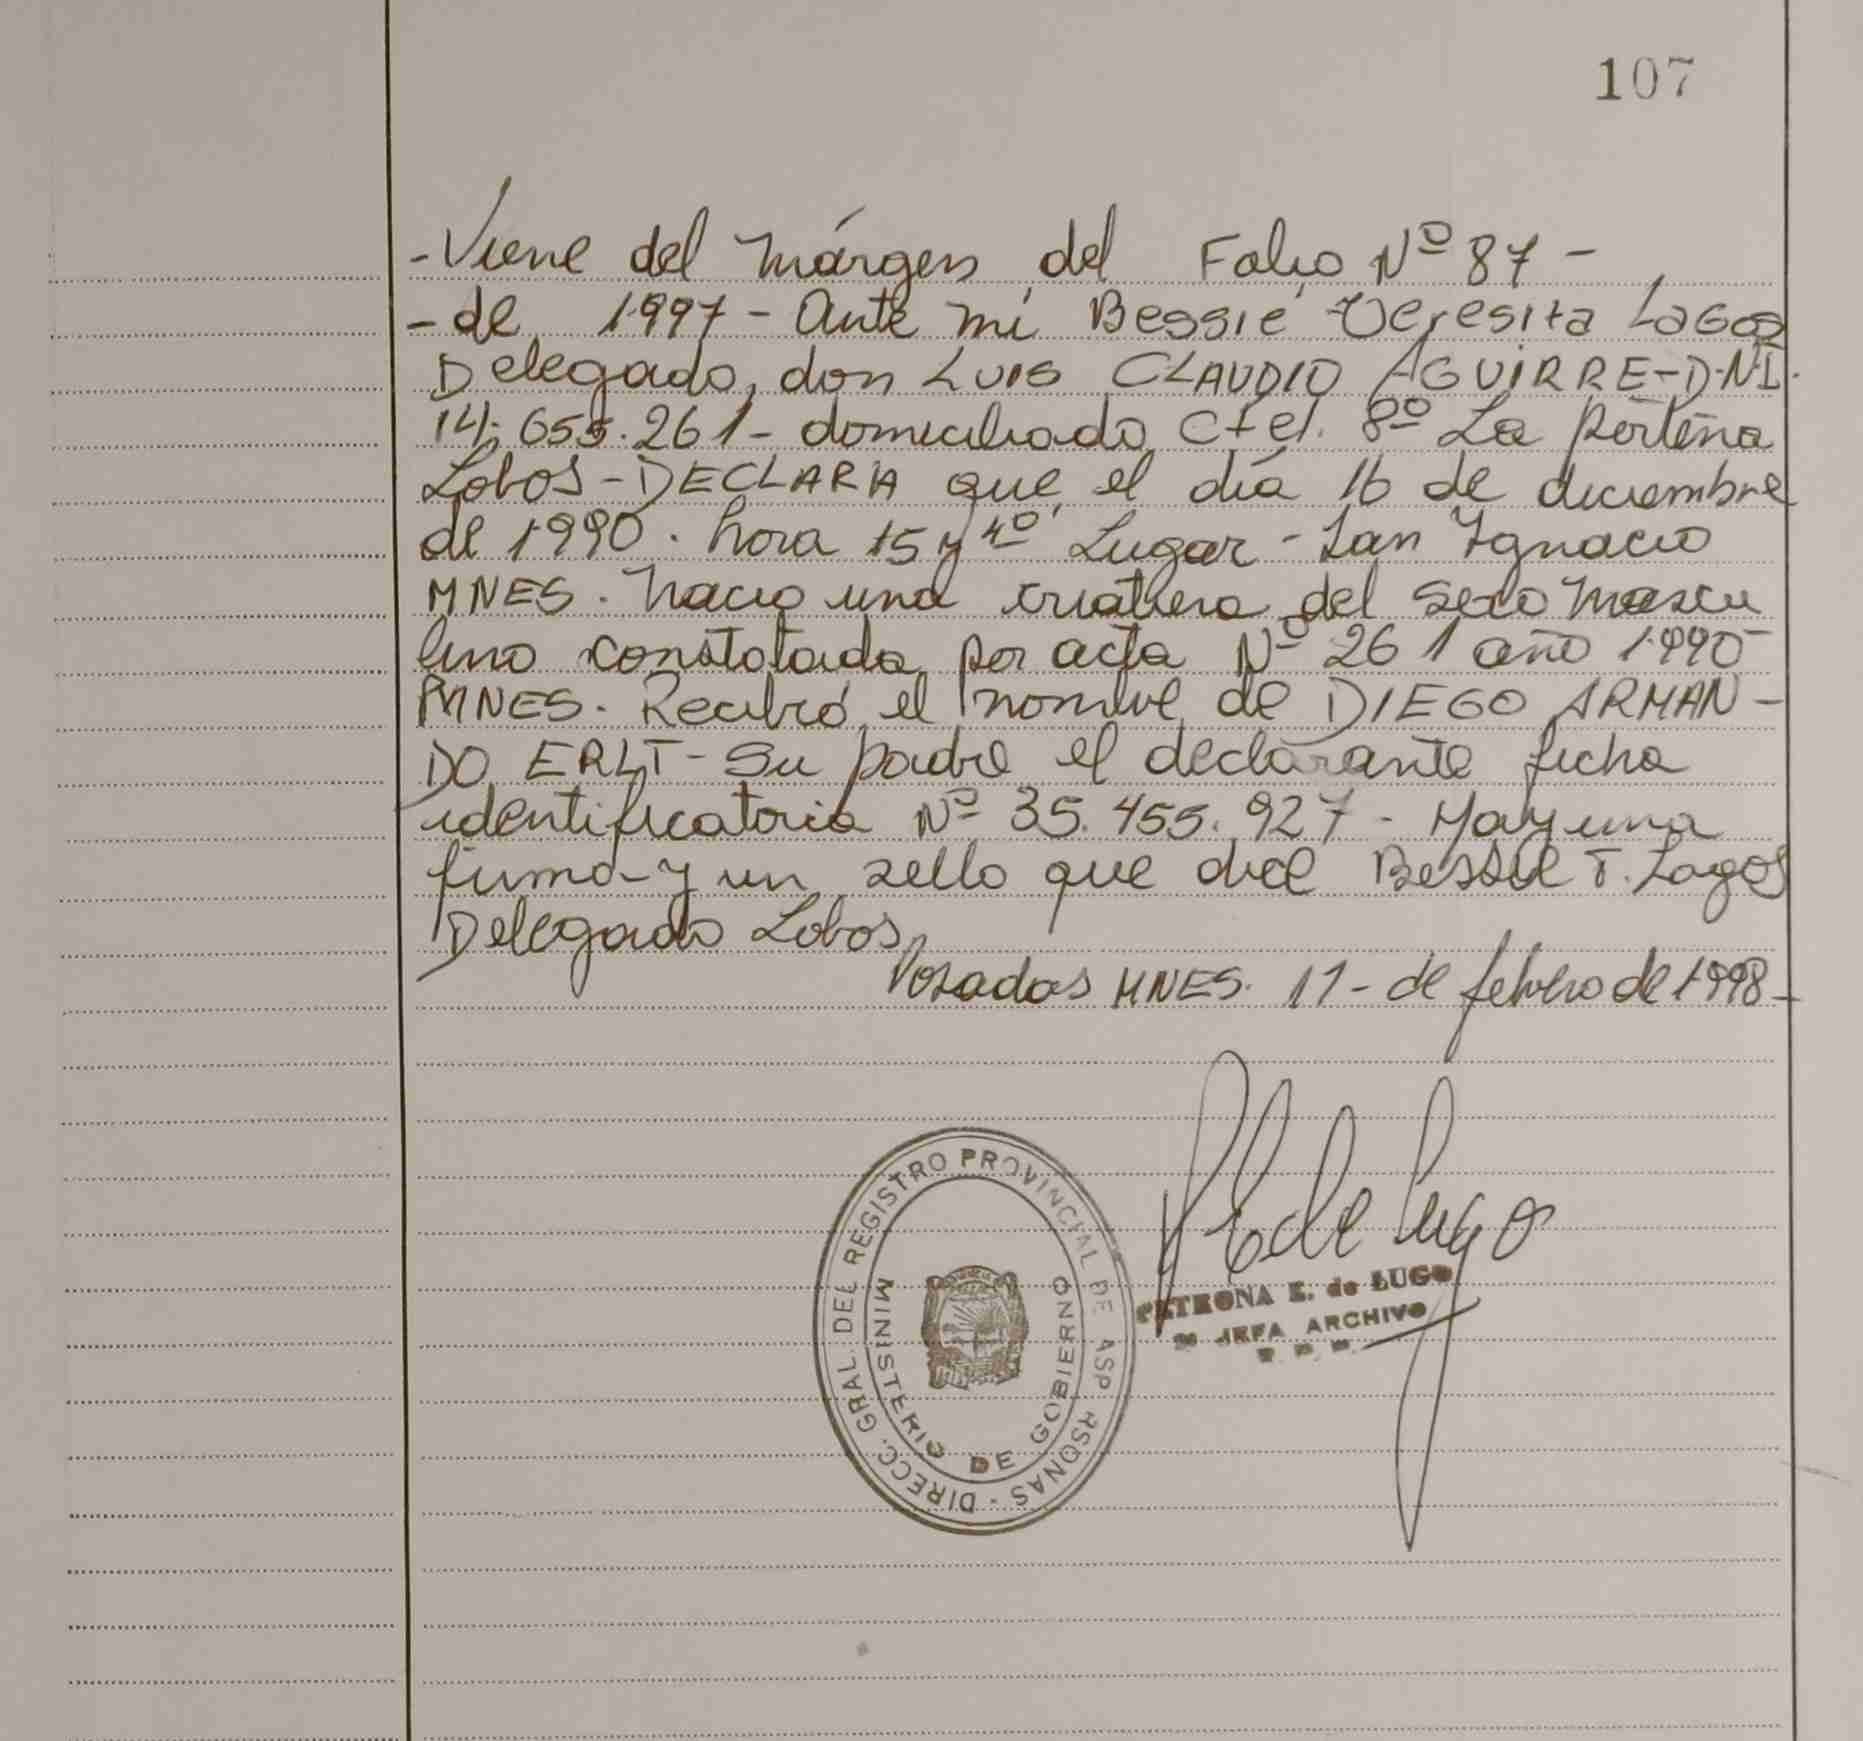 107
-Viene del márgen del Folio Nº 87-
-de 1997- Ante mi Bessie Teresita Lagos
Delegado, don LUIS CLAUDIO AGUIRRE-D.N.I.
14.655.261- domiciliado Ctel. 8º La porteña
Lobos-DECLARA que el día 16 de diciembre
de 1990. hora 15 y 40 Lugar-San Ignacio
MNES. nacio una criatura del sexo mascu
lino constatada por acta Nº 261 año 1990-
MNES. Recibió el nombre de DIEGO ARMAN-
DO ERLT- Su padre el declarante ficha
identificatoria Nº 35.455.927- Hay una
firma-y un sello que dice Bessie T. Lagos
Delegado Lobos.
Posadas MNES. 11-de febrero de 1998-
DIRECC. GRAL. DEL REGISTRO PROVINCIAL DE ASP. PERSONAS -
MINISTERIO DE GOBIERNO
PE de Lugo
PETRONA E. de LUGO
JEFA ARCHIVO